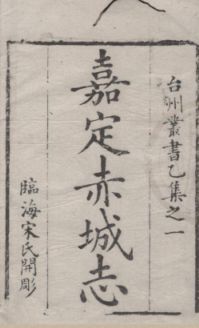 台州叢書乙集之一
嘉定赤城志
臨海宋氏開彫